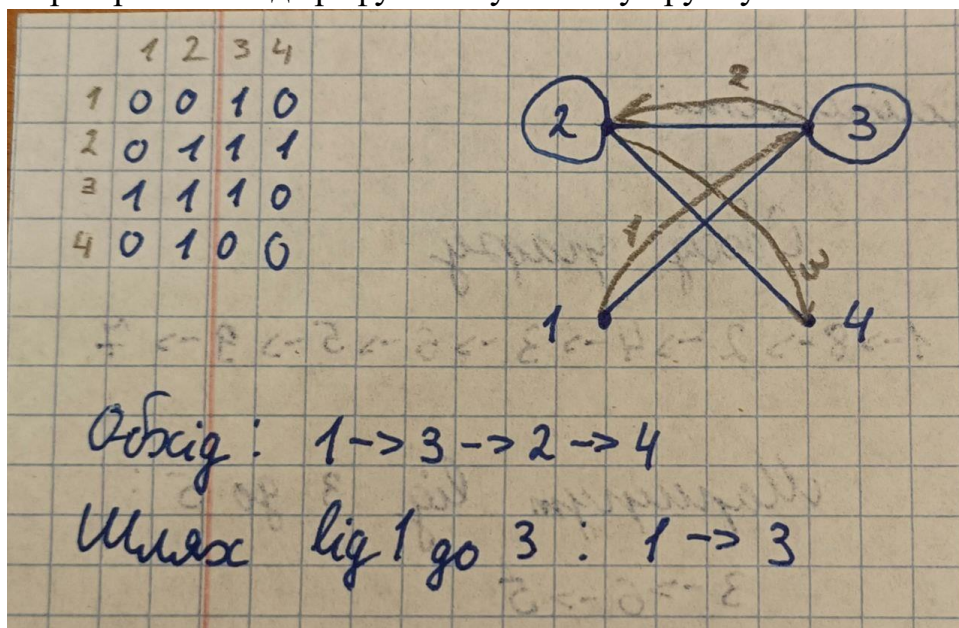 1 2 3 4
1 0 0 1 0
2 0 1 1 1
3 1 1 1 0
4 0 1 0 0
2
2 3
1 3
1 4
Обхід: 1->3->2->4
Шлях від 1 до 3: 1->3